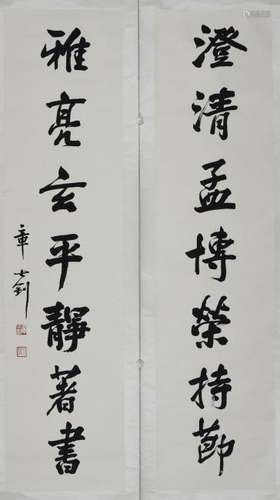 澄清孟博榮持節
雅亮玄平靜著書
章士釗